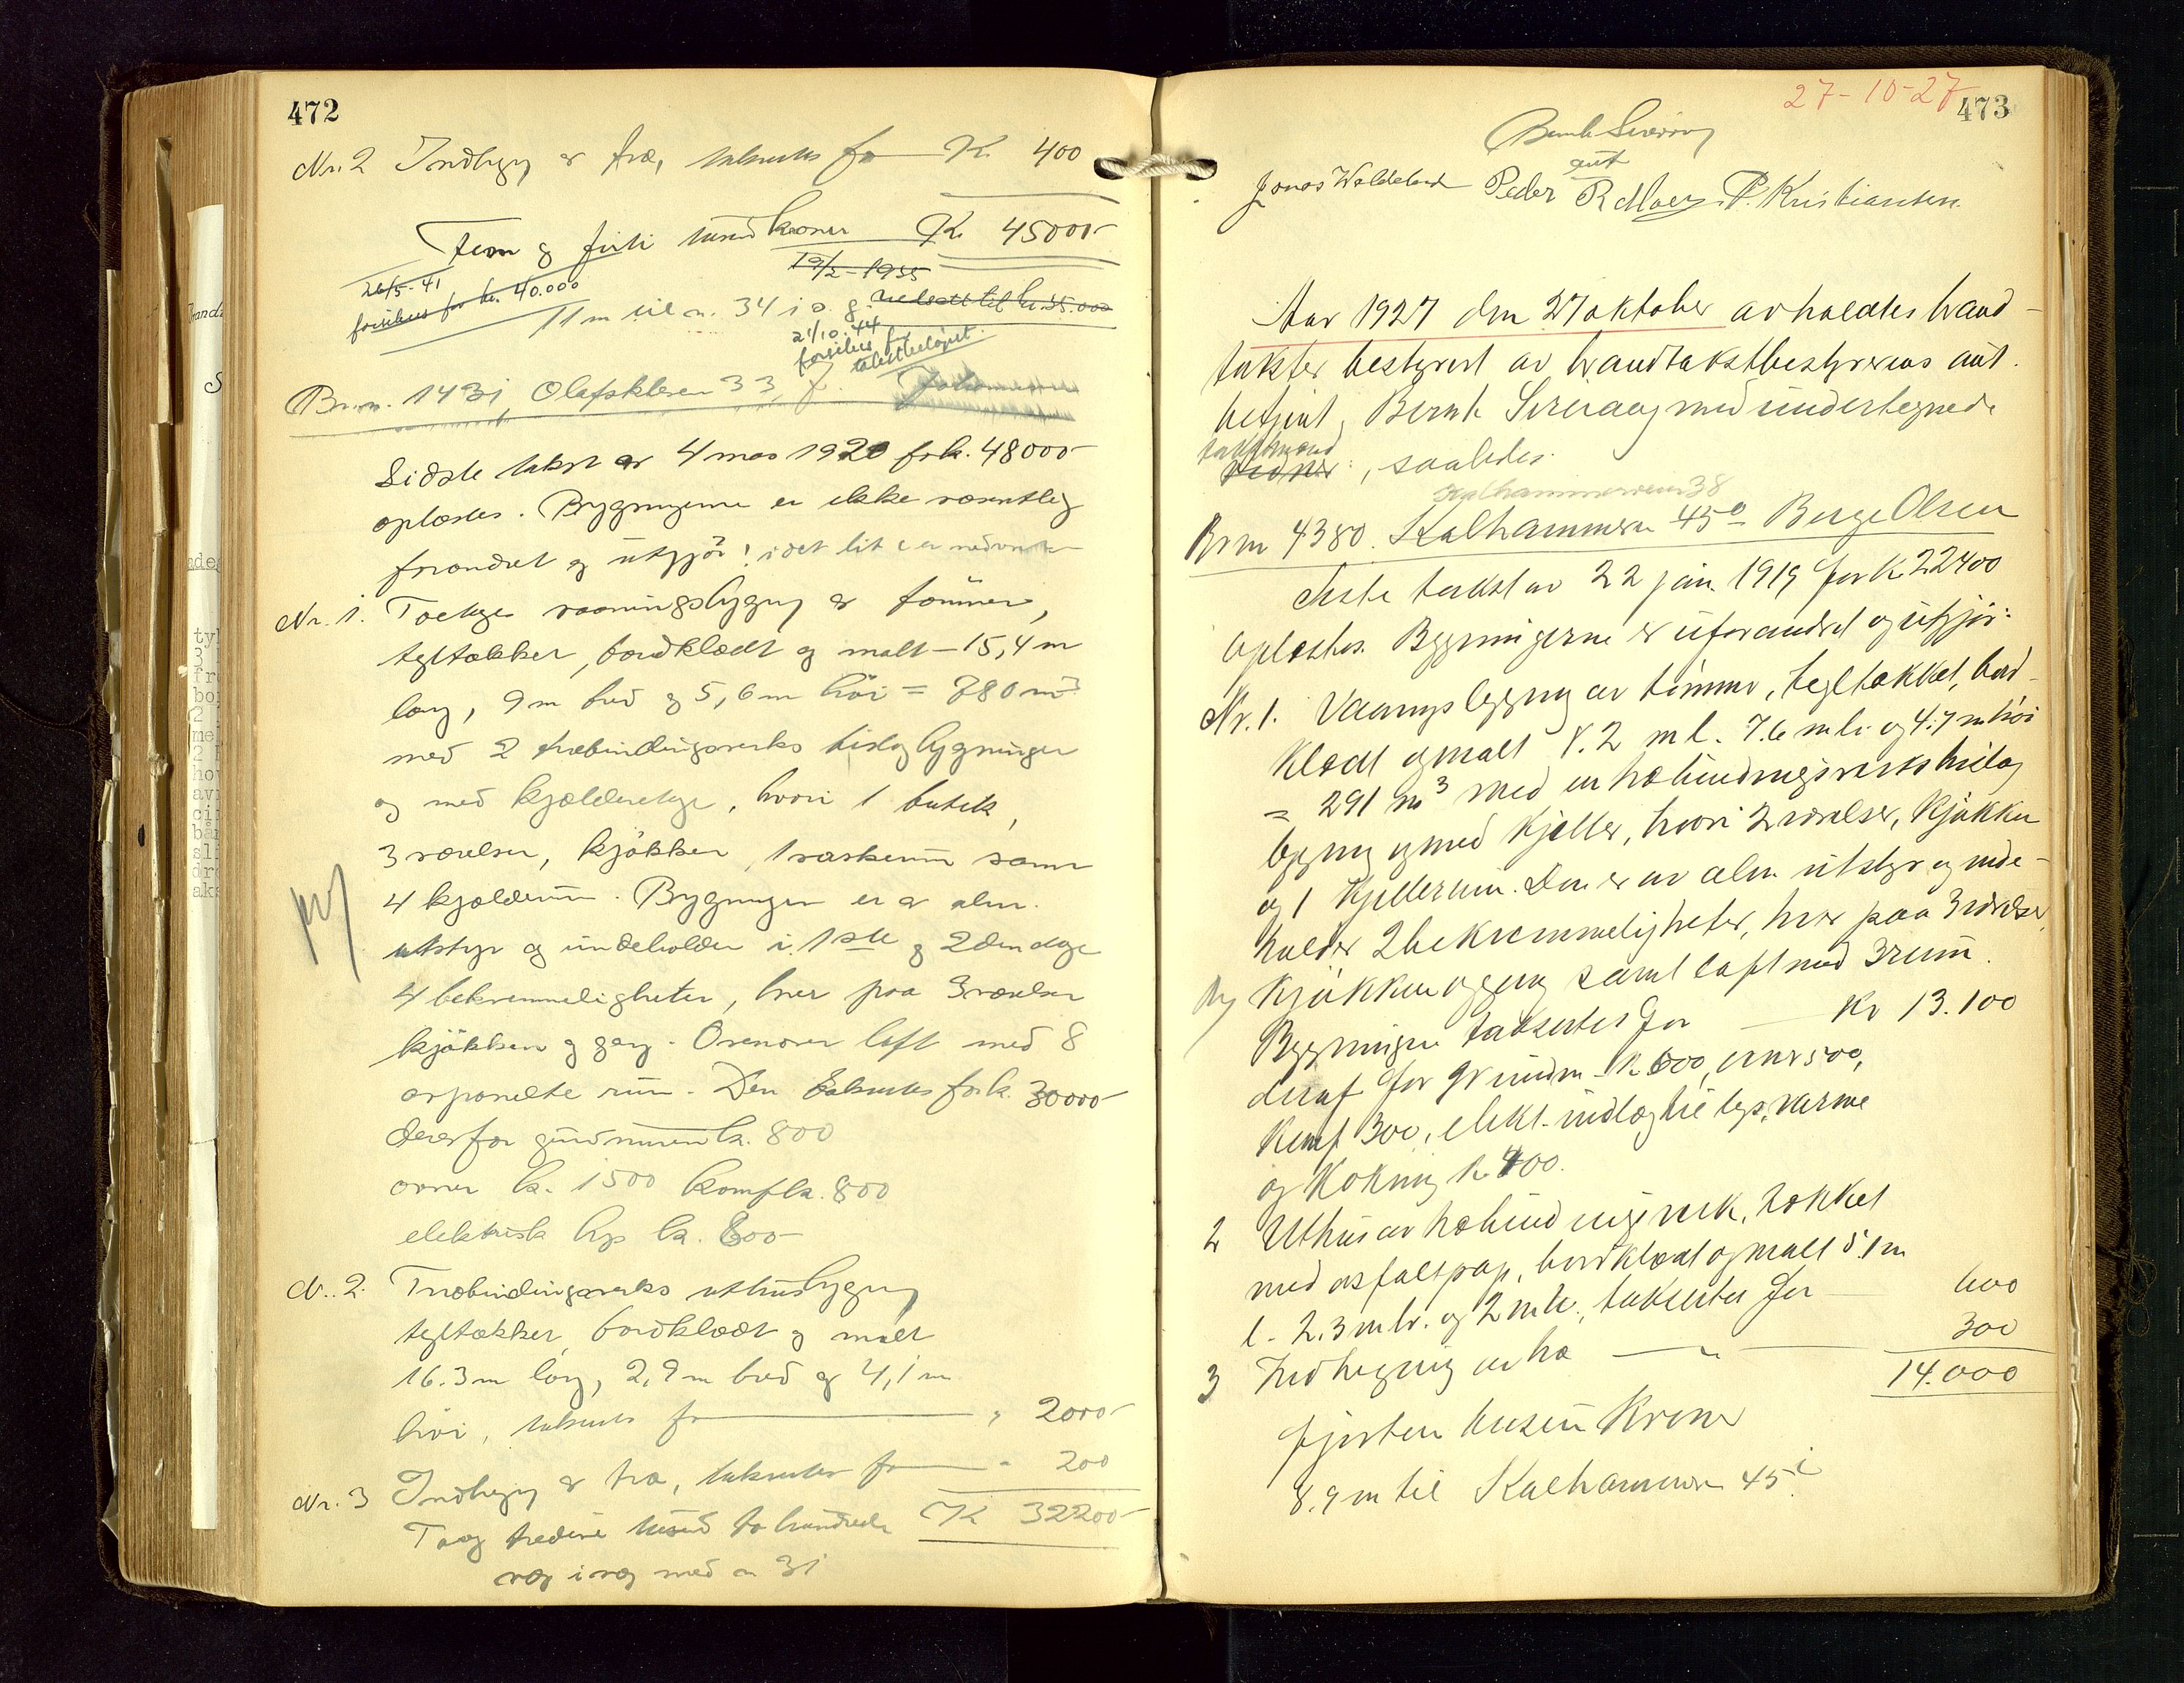 472
Nr. 2 Indhegn. av træ, takseres for K. 400
Fem og firti tusend kroner K. 45000-
19/2-1935
26/5-41
forsikres for kr. 40.000
11 m til n. 34 i o. g. nedsatt til kr. 35.000
21/10.44
forsikres for
takstbeløpet.
Br.n. 1431, Olafskleven 33,
Sidste takst av 4 mars 1920 for k. 48000-
oplæstes. Bygningerne er ikke væsentlig
forandret og utgjör:
Nr. 1. Toetages vaaningsbygning av tömmer,
tegltækket, bordklædt og malt – 15,4 m
lang, 9 m bred og 5,6 m höi = 780 m3
med 2 træbindingsverks tilbygninger
og med kjælderetage, hvori 1 butik,
3 værelser, kjökken, 1 vaskerum samt
4 kjælderrum. Bygningen er av alm.
utstyr og indeholder i 1ste og 2den etage
4 bekvemmeligheter, hver paa 3 værelser
kjökken og gang. Ovenover loft med 8
avpanelte rum. Den takseres for k. 30000-
derav for grundmuren k. 800
ovner k. 1500 komf k. 800
elektrisk lys k. 600-
N. 2. Træbindingsverks uthusbygning
tegltækket, bordklædt og malt
16.3 m lang, 2,9 m bred og 4,1 m
höi, takseres for " 2000-
Nr. 3 Indhegn. av træ, takseres for " 200
To og tredive tusend to hundrede K 32200-
væg i væg med n 31
27-10-27
473
aut
Jonas Waldeland Peder P. Kristiansen
Aar 1927 den 27 oktober avholdtes brand-
takster bestyret av brandtakstbestyrerens aut.
betjent, Bernh. med undertegnede
takstmænd, saaledes:
Kalhammerveien 38
Br nr 4380. Kalhammeren 45a Berge Olsen
Siste takst av 22 jan. 1919 for k. 22400
oplæstes. Bygningerne er uforandret og utgjör:
Nr. 1. Vaaningsbygning av tömmer, tegltækket, bord-
klædt og malt 8.2 m l. 7.6 m br. og 4.7 m höi
= 291 m3 med en træbindingsverks tilbyg
bygning og med kjelder, hvori 2 værelser, kjökken
og 1 kjellerrum. Den er av alm. utstyr og inde-
holder 2 bekvemmeligheter, hver paa 3 værelser,
kjökken og gang samt loft med 3 rum.
Bygningen takseres for Kr 13.100
deraf for grundm. k 600, ovner 500,
komf 300, elekt. indlæg til lys, varme
og kokning k 400.
2 Uthus av træbindingsverk, tækket
med asfaltpap, bordklædt og malt 5.1 m
l. 2.3 m br. og 2 m h., takseres for 600
3 Indhegning av træ " 300
14.000
fjorten tusen kroner
8.9 m til Kalhammeren 45i